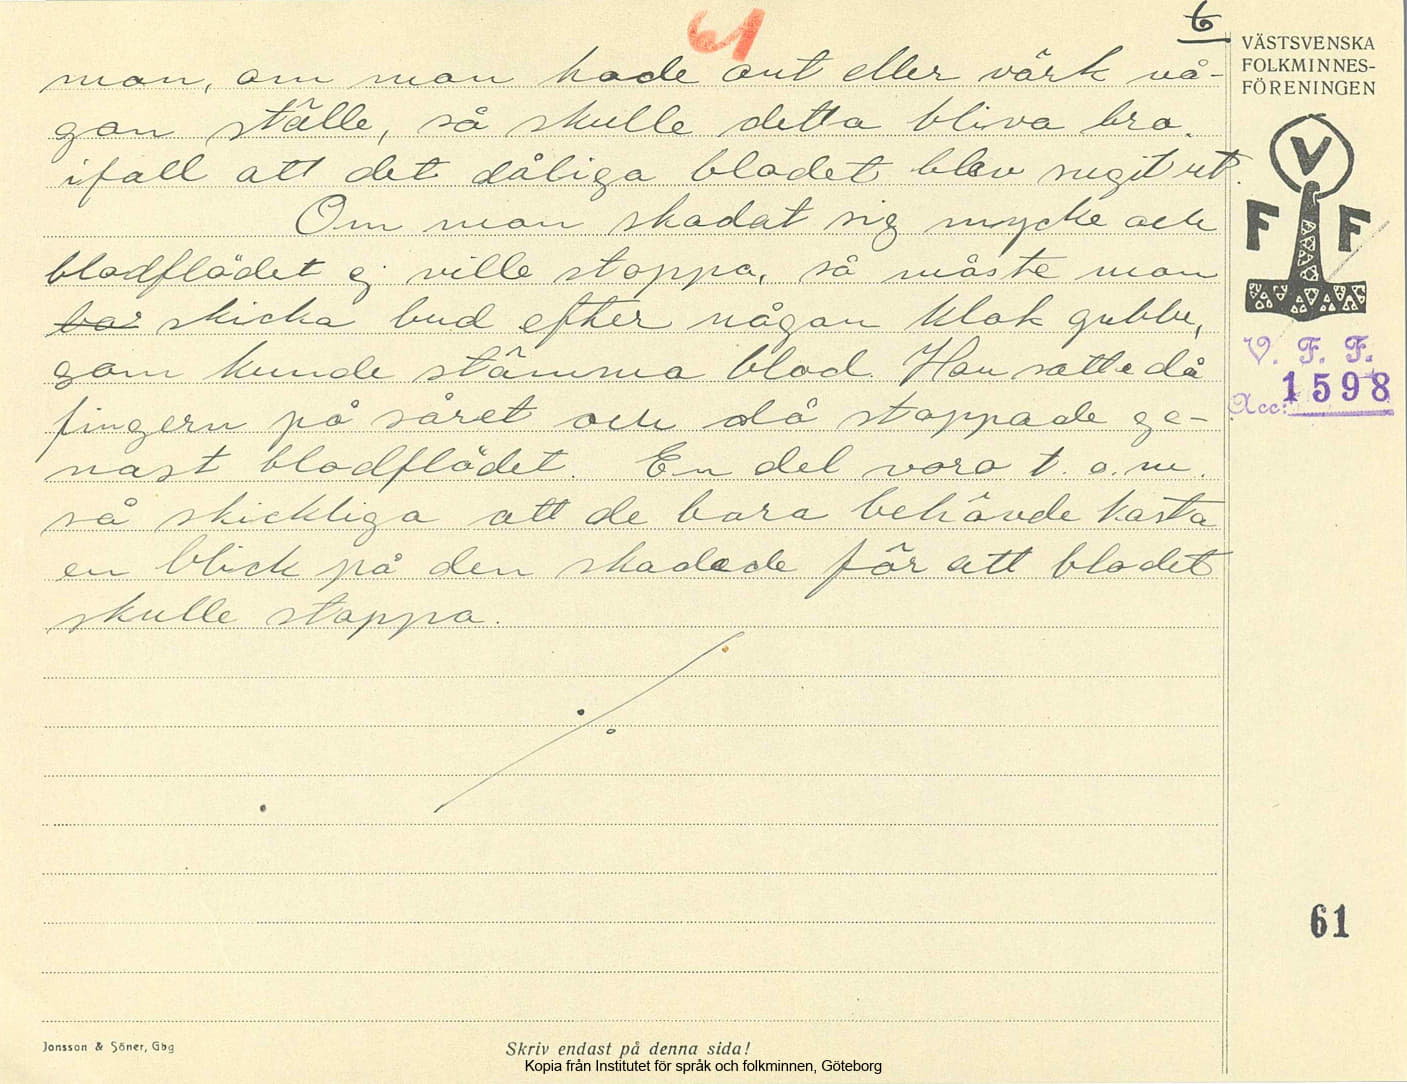 6
61
VÄSTSVENSKA
FOLKMINNES-
FÖRENINGEN
man, om man hade ont eller värk nå-
gon ställe, så skulle detta bliva bra.
ifall att det dåliga blodet blev sugit ut.
Om man skadat sig mycke och
blodflödet ej ville stoppa, så måste man
bar skicka bud efter någon klok gubbe,
som kunde stämma blod. Han satte då
fingern på såret och då stoppade ge-
nast blodflödet. En del voro t. o. m.
så skickliga att de bara behövde kasta
en blick på den skadade för att blodet
skulle stoppa.
V
F F
V. F. F.
Acc: 1598
61
Jonsson & Söner, Gbg
Skriv endast på denna sida!
Kopia från Institutet för språk och folkminnen, Göteborg